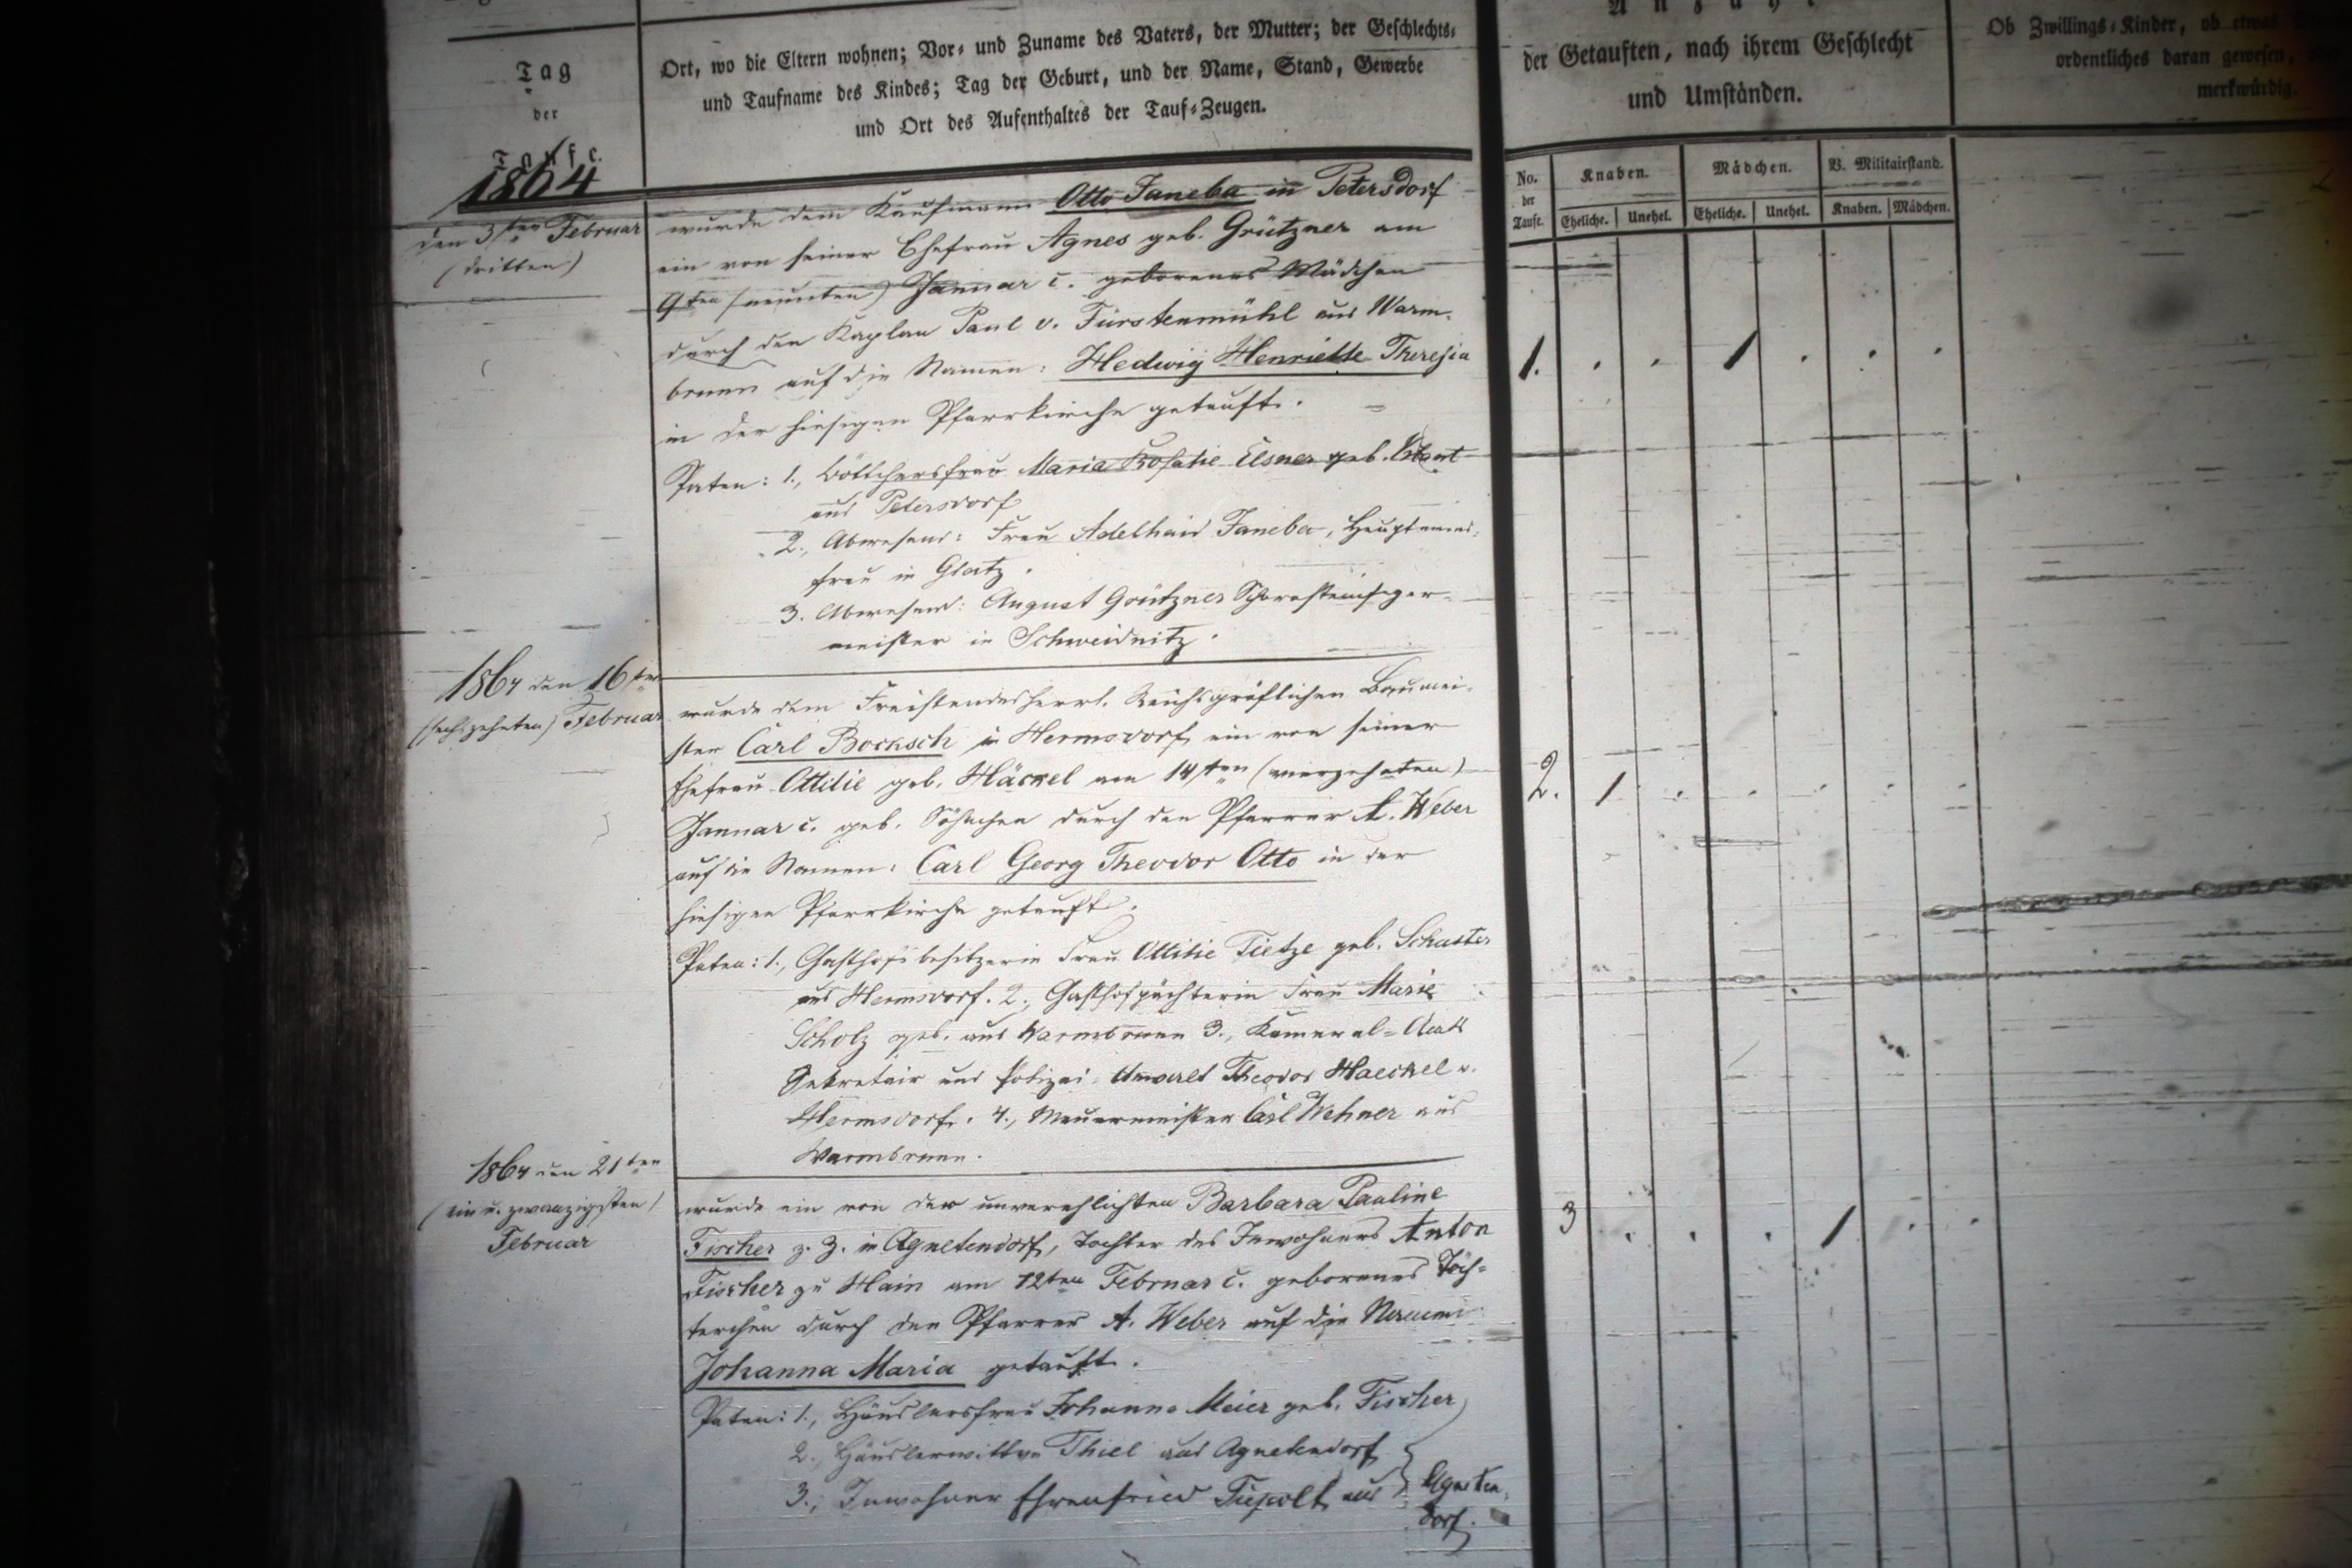 Tag
der
Taufe.
1864
Ort, wo die Eltern wohnen; Vor- und Zuname des Vaters, der Mutter; der Geschlechts-
und Taufname des Kindes; Tag der Geburt, und der Name, Stand, Gewerbe
und Ort des Aufenthaltes der Tauf-Zeugen.
Anzahl
der Getauften, nach ihrem Geschlecht
und Umständen.
Ob Zwillings-Kinder, ob etwas
ordentliches daran gewesen,
merkwürdig.
No.
der
Taufe.
Knaben.
Mädchen.
V. Militairstand.
Eheliche. Unehel. Eheliche. Unehel. Knaben. Mädchen.
den 3ten Februar
(dritten)
wurde dem Kaufmann Otto Janeba in Petersdorf
ein von seiner Ehefrau Agnes geb. Grützner am
9ten (neunten) Januar c. geborenes Mädchen
durch den Kaplan Paul v. Fürstenmühl aus Warm-
brunn auf die Namen: Hedwig Henriette Theresia
in der hiesigen Pfarrkirche getauft.
1. 1
Paten: 1., Böttchersfrau Maria Rosalie Elsner geb.
aus Petersdorf
2., Abwesend: Frau Adelhaid Janeba, Hauptmanns-
frau in Glatz.
3. Abwesend: August Grützner Schornsteinfeger-
meister in Schweidnitz.
1864 den 16ten
(sechszehnten) Februar
wurde dem Freistandesherrl. Reichsgräflichen Baumei-
ster Carl Bocksch in Hermsdorf ein von seiner
Ehefrau Ottilie geb. Häckel am 14ten (vierzehnten)
Januar c. geb. Söhnchen durch den Pfarrer A. Weber
auf die Namen: Carl Georg Theodor Otto in der
hiesigen Pfarrkirche getauft.
2. 1
Paten: 1., Gasthofsbesitzerin Frau Ottilie Tietze geb. Schuster
aus Hermsdorf. 2., Gasthofpächterin Frau Marie
Scholz geb. aus Warmbrunn 3., Kameral-Amts
Sekretair und Polizei-Anwalt Theodor Haeckel v.
Hermsdorf. 4., Mauermeister Carl Wehner aus
Warmbrunn.
1864 den 21ten
(ein u. zwanzigsten)
Februar
wurde ein von der unverehlichten Barbara Pauline
Fischer z. Z. in Agnetendorf, Tochter des Inwohners Anton
Fischer zu Hain am 12ten Februar c. geborenes Töch-
terchen durch den Pfarrer A. Weber auf die Namen:
Johanna Maria getauft.
3 1
Paten: 1., Häuslersfrau Johanna Meier geb. Fischer
2. Häuslerwittwe Thiel aus Agnetendorf
3., Inwohner Ehrenfried aus Agneten-
dorf.